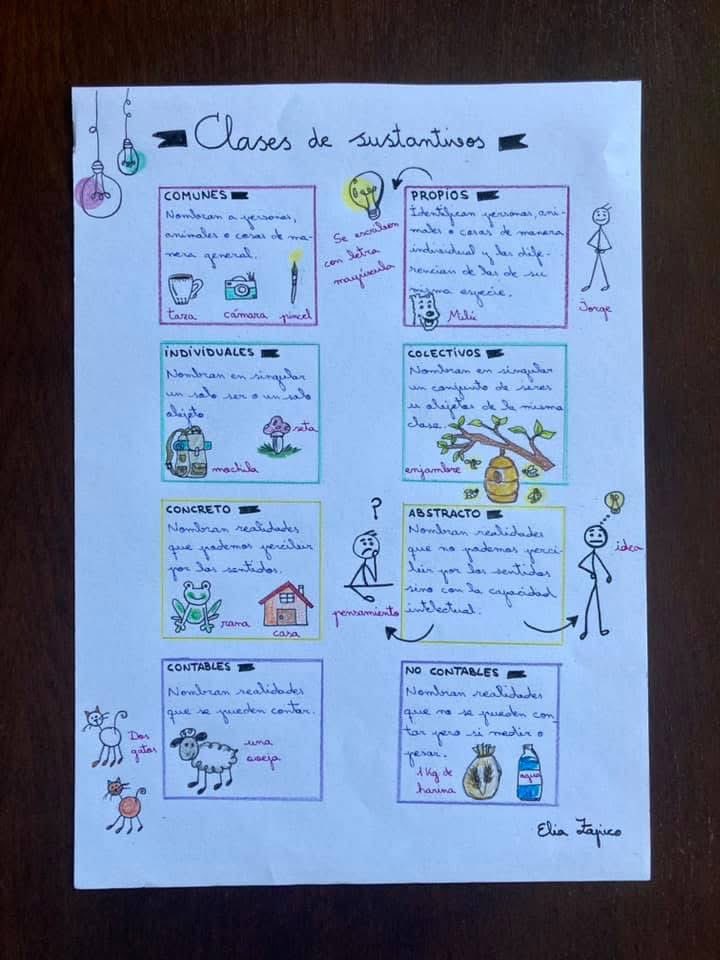 Clases de sustantivos
COMUNES
Nombran a personas,
animales o cosas de ma-
nera general.
taza cámara pincel
Se escriben
con letra
mayúscula
PROPIOS
Identifican personas, ani-
males o cosas de manera
individual y las dife-
rencian de las de su
misma especie.
Milú
Jorge
INDIVIDUALES
Nombran en singular
un solo ser o un solo
objeto.
seta
mochila
COLECTIVOS
Nombran en singular
un conjunto de seres
u objetos de la misma
clase.
enjambre
CONCRETO
Nombran realidades
que podemos percibir
por los sentidos.
rana
casa
?
pensamiento
ABSTRACTO
Nombran realidades
que no podemos perci-
bir por los sentidos
sino con la capacidad
intelectual.
idea
CONTABLES
Nombran realidades
que se pueden contar.
una
oveja
Dos
gatos
NO CONTABLES
Nombran realidades
que no se pueden con_
tar pero si medir o
pesar.
1 Kg de
harina
agua
Elia Zapico